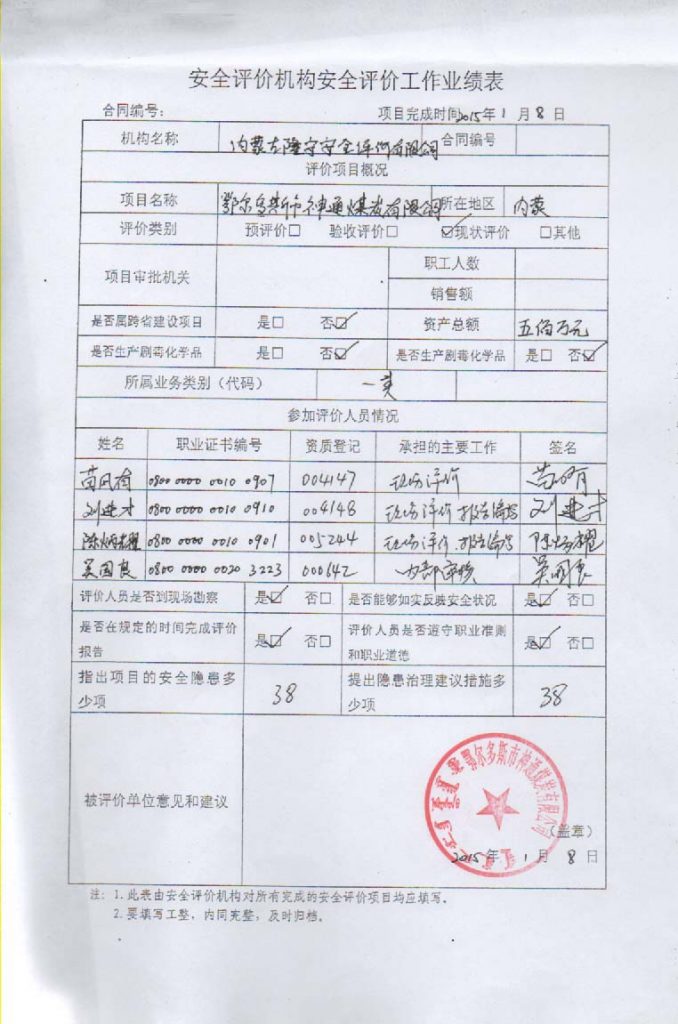 安全评价机构安全评价工作业绩表
合同编号： 项目完成时间2015年1月8日
机构名称 内蒙古隆宇安全评价有限公司 合同编号
评价项目概况
项目名称 鄂尔多斯市神通煤炭有限公司 所在地区 内蒙
评价类别 预评价□ 验收评价□ ☑现状评价 □其他
项目审批机关 职工人数
销售额
是否属跨省建设项目 是□ 否☑ 资产总额 五佰万元
是否生产剧毒化学品 是□ 否☑ 是否生产剧毒化学品 是□ 否☑
所属业务类别（代码） 一类
参加评价人员情况
姓名 职业证书编号 资质登记 承担的主要工作 签名
苗风有 0800 0000 0010 0907 004147 现场评价
刘建才 0800 0000 0010 0910 004148 现场评价.报告编写 刘建才
陈炳耀 0800 0000 0010 0901 005244 现场评价.报告编写 陈炳耀
吴国良 0800 0000 0020 3223 000642 内部审核 吴国良
评价人员是否到现场勘察 是☑ 否□ 是否能够如实反映安全状况 是☑ 否□
是否在规定的时间完成评价 评价人员是否遵守职业准则
报告 是☑ 否□ 和职业道德 是☑ 否□
指出项目的安全隐患多 提出隐患治理建议措施多
少项 38 少项 38
鄂尔多斯市神通煤炭有限公司
被评价单位意见和建议
（盖章）
2015年1月8日
注：1.此表由安全评价机构对所有完成的安全评价项目均应填写。
2.要填写工整，内同完整，及时归档。